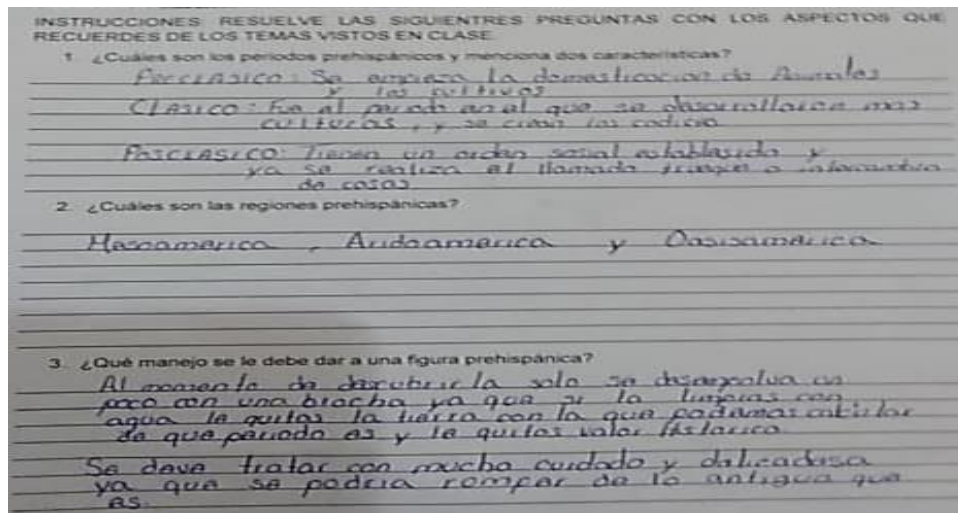 INSTRUCCIONES: RESUELVE LAS SIGUIENTRES PREGUNTAS CON LOS ASPECTOS QUE
RECUERDES DE LOS TEMAS VISTOS EN CLASE.
1. ¿Cuáles son los periodos prehispánicos y menciona dos características?
PRECLASICO: Se empieza la domesticacion de Animales
y los cultivos
CLASICO: Fue al periodo an al que se desarrollaron mas
culturas, y se crean los codices
POSCLASICO: Tienen un orden social establesido y
ya se realiza el llamado trueque o intercambio
de cosas
2. ¿Cuáles son las regiones prehispánicas?
Mesoamerica, Aridoamerica y Oasisamerica
3. ¿Qué manejo se le debe dar a una figura prehispánica?
Al momento de descubrirla solo se desempolva un
poco con una brocha ya que si la limpias con
agua le quitas la tierra con la que podemos calcular
de que periodo es y le quitas valor historico.
Se deve tratar con mucho cuidado y delicadesa
ya que se podria romper de lo antigua que
es.